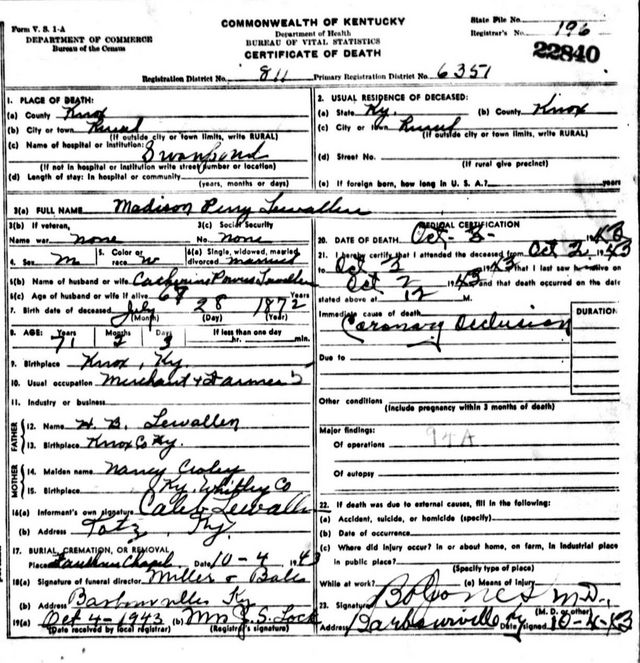 Form V. S. 1-A
DEPARTMENT OF COMMERCE
Bureau of the Census
COMMONWEALTH OF KENTUCKY
Department of Health
BUREAU OF VITAL STATISTICS
CERTIFICATE OF DEATH
State File No.
Registrar's No. 196
22840
Registration District No. 811 Primary Registration District No. 6351
1. PLACE OF DEATH:
(a) County Knox
(b) City or town Rural
(If outside city or town limits, write RURAL)
(c) Name of hospital or institution: Swanpond
(If not in hospital or institution write street number or location)
(d) Length of stay: In hospital or community
(years, months or days)
2. USUAL RESIDENCE OF DECEASED:
(a) State Ky. (b) County Knox
(c) City or town Rural
(If outside city or town limits, write RURAL)
(d) Street No.
(If rural give precinct)
(e) If foreign born, how long in U. S. A.? years
3(a) FULL NAME Madison Perry Lewallen
3(b) If veteran, Name war none
3(c) Social Security No. none
4. Sex m 5. Color or race w 6(a) Single, widowed, married divorced married
6(b) Name of husband or wife Catherine Powers Lewallen
6(c) Age of husband or wife if alive 68 Years
7. Birth date of deceased July 28 1872
(Month) (Day) (Year)
8. AGE: Years Months Days If less than one day
71 2 3 hr. min.
9. Birthplace Knox, Ky
10. Usual occupation Merchant & Farmer
11. Industry or business
FATHER
12. Name H. B. Lewallen
13. Birthplace Knox Co Ky.
MOTHER
14. Maiden name Nancy Croley
15. Birthplace Ky. Whitley Co
16(a) Informant's own signature Caleb Lewallen
(b) Address Totz Ky.
17. BURIAL, CREMATION, OR REMOVAL
Place Chapel Date 10-4 1943
18(a) Signature of funeral director Miller & Balls
(b) Address Barbourville Ky
19(a) Oct 4-1943 (b) Mrs J. S. Lock
(Date received by local registrar) (Registrar's signature)
MEDICAL CERTIFICATION
20. DATE OF DEATH Oct- 1943
21. I hereby certify that I attended the deceased from Oct 2 1943
to Oct 2 1943 that I last saw h alive on
Oct 2 1943 and that death occurred on the date
stated above at 12 M.
Immediate cause of death DURATION
Coronary Occlusion
Due to
Other conditions
(Include pregnancy within 3 months of death)
Major findings: 94A
Of operations
Of autopsy
22. If death was due to external causes, fill in the following:
(a) Accident, suicide, or homicide (specify)
(b) Date of occurrence
(c) Where did injury occur? in or about home, on farm, in industrial place
in public place?
(Specify type of place)
While at work? (e) Means of injury
23. Signature Jones M.D.
(M. D. or other)
Address Barbourville Ky Date signed 10-4-43